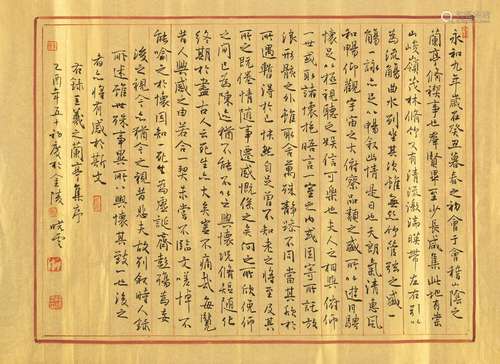 永和九年歲在癸丑暮春之初會于會稽山陰之
蘭亭脩禊事也羣賢畢至少長咸集此地有崇
山峻嶺茂林脩竹又有清流激湍暎帶左右引以
為流觴曲水列坐其次雖無絲竹管弦之盛一
觴一詠亦足以暢叙幽情是日也天朗氣清惠風
和暢仰觀宇宙之大俯察品類之盛所以遊目騁
懷足以極視聽之娛信可樂也夫人之相與俯仰
一世或取諸懷抱晤言一室之內或因寄所託放
浪形骸之外雖取舍萬殊靜躁不同當其欣於
所遇暫得於己快然自足曾不知老之將至及其
所之既倦情隨事遷感慨係之矣向之所欣俛仰
之間已為陳迹猶不能不以之興懷況脩短隨化
終期於盡古人云死生亦大矣豈不痛哉每覽
昔人興感之由若合一契未嘗不臨文嗟悼不
能喻之於懷固知一死生為虛誕齊彭殤為妄
後之視今亦猶今之視昔悲夫故列叙時人錄
所述雖世殊事異所以興懷其致一也後之
者亦將有感於斯文
右錄王羲之蘭亭集序
乙酉年五月初度於金陵